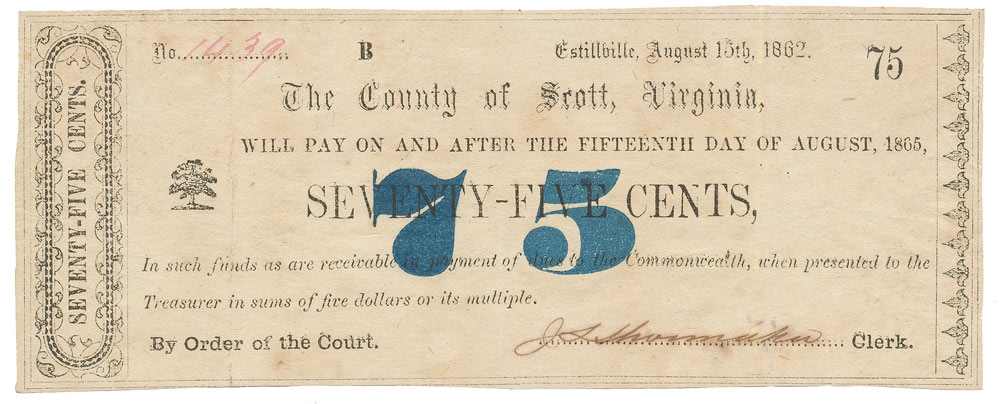 SEVENTY-FIVE CENTS.
No. 1439 B Estillville, August 15th, 1862. 75
The County of Scott, Virginia,
WILL PAY ON AND AFTER THE FIFTEENTH DAY OF AUGUST, 1865,
SEVENTY-FIVE CENTS,
75
In such funds as are receivable in payment of dues to the Commonwealth, when presented to the
Treasurer in sums of five dollars or its multiple.
By Order of the Court. Clerk.